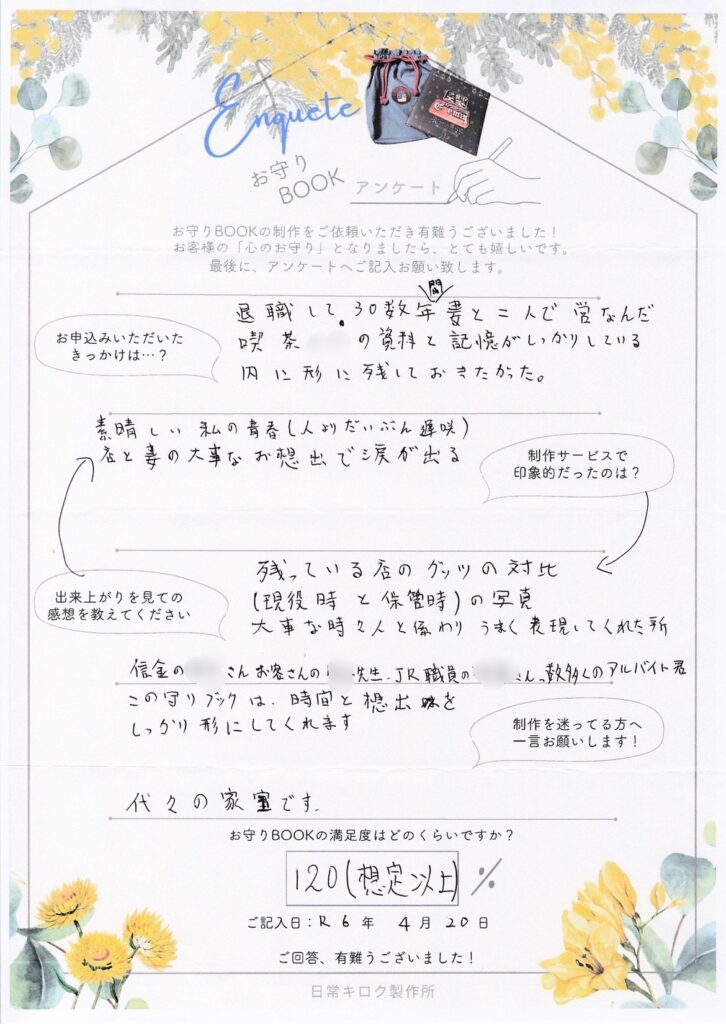 Enquete
お守り
BOOK
アンケート
お守りBOOKの制作をご依頼いただき有難うございました！
お客様の「心のお守り」となりましたら、とても嬉しいです。
最後に、アンケートへご記入お願い致します。
お申込みいただいた
きっかけは…？
退職して、30数年間妻と二人で営なんだ
喫茶 の資料と記憶がしっかりしている
内に形に残しておきたかった。
素晴しい私の青春(人よりだいぶん遅咲)
店と妻の大事なお想出で涙が出る
制作サービスで
印象的だったのは？
出来上がりを見ての
感想を教えてください
残っている店のグッツの対比
(現役時と保管時)の写真
大事な時々人と係わりうまく表現してくれた所
信金の さんお客さんの 先生.JR職員の さん、数多くのアルバイト君
この守りブックは、時間と想出を
しっかり形にしてくれます
制作を迷ってる方へ
一言お願いします！
代々の家宝です.
お守りBOOKの満足度はどのくらいですか？
120(想定以上) %
ご記入日：R 6 年 4 月 20 日
ご回答、有難うございました！
日常キロク製作所